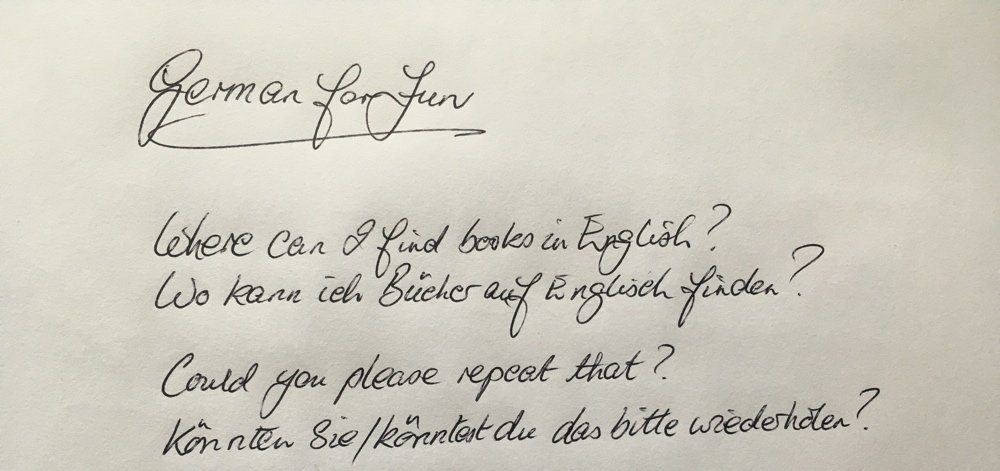 German for fun
Where can I find books in English?
Wo kann ich Bücher auf Englisch finden?
Could you please repeat that?
Könnten Sie/könntest du das bitte wiederholen?